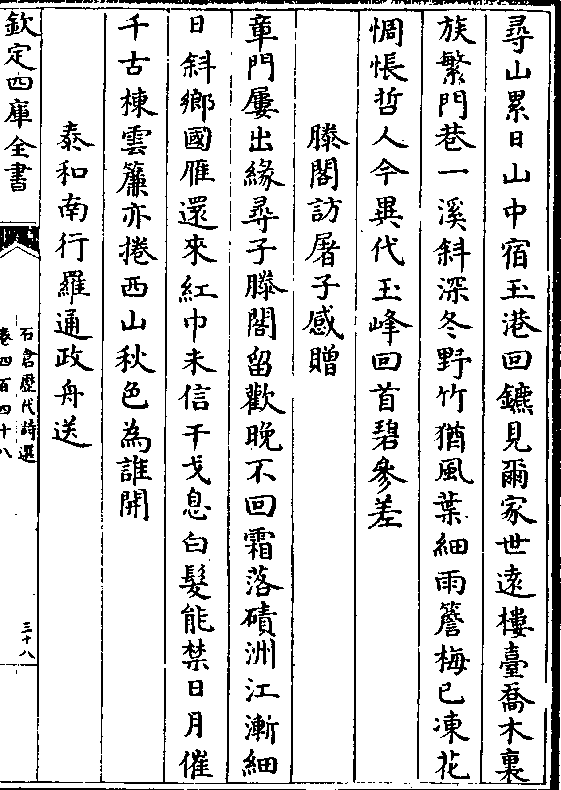 尋山累日山中宿玉港回鑣見爾家世遠樓臺喬木裏
族繁門巷一溪斜深冬野竹猶風葉細雨簷梅已凍花
惆悵哲人今異代玉峰回首碧參差
滕閣訪屠子感贈
章門屢出緣尋子滕閣留歡晚不回霜落磧洲江漸細
日斜鄉國雁還來紅巾未信干戈息白髮能禁日月催
千古棟雲簾亦捲西山秋色為誰開
泰和南行羅通政舟送
欽定四庫全書
石倉歷代詩選
卷四百四十八
三十八